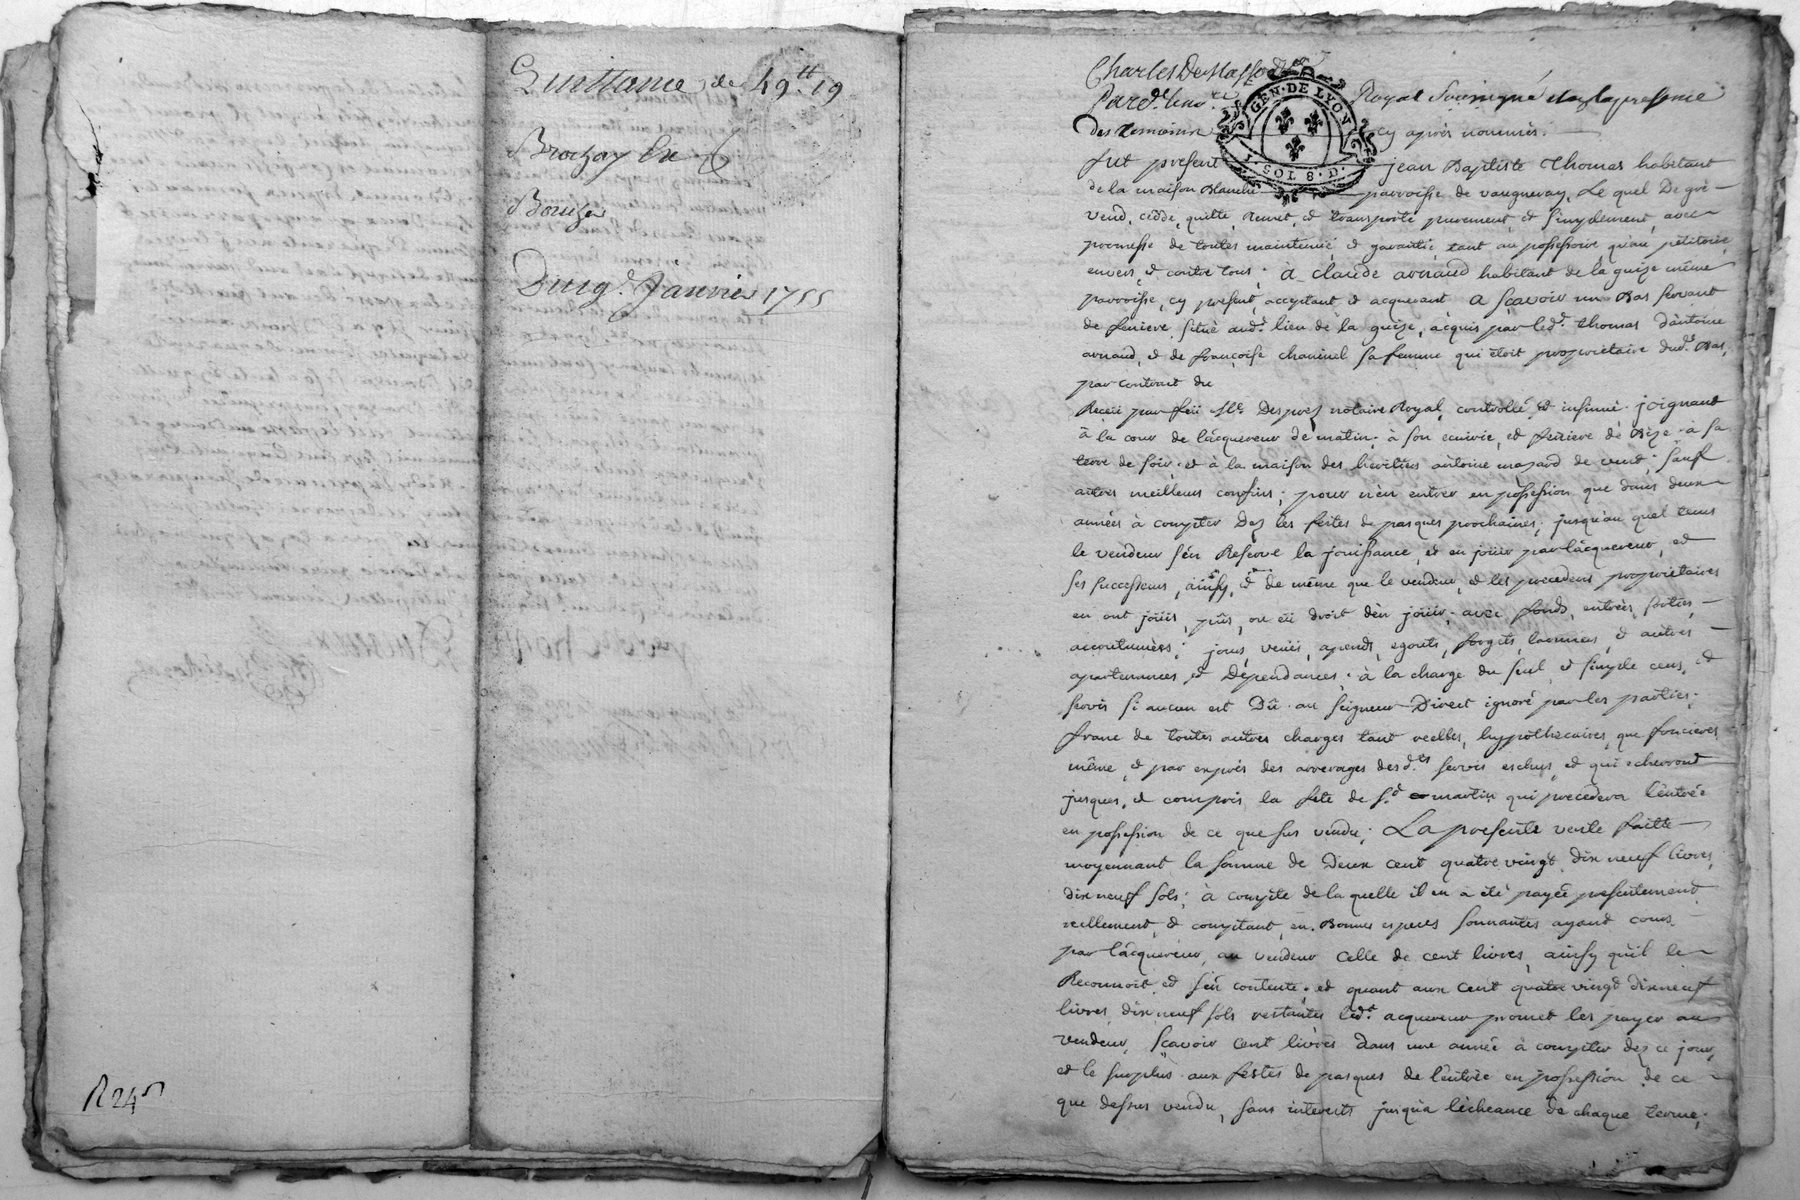 Quittance de 49.tt 19
Brochay
Du 19.e Janvier 1755
R 24 s
GEN · DE LYON
1 · SOL 8 · D ·
Par d.t Royal Soussigné et en la presence
Des temoins cy après nommés.
fut présent jean Baptiste Thomas habitant
de la maison Blanche parroisse de vaugneray, Le quel De gré
vend, cedde, quitte, Remet, et transporte purement, et simplement, avec
promesse de toutes maintenüe et garantie, tant au possessoire qu'au pétitoire,
envers, et contre tous. à claude arnaud habitant de la guize même
parroisse, cy present, acceptant et acquerant A sçavoir un Bas servant
de feniere, situé aud.t lieu de la guize, acquis par led.t thomas d'antoine
arnaud, et de françoise chauinel sa femme qui étoit proprietaire dud.t Bas,
par contract du
Receü par feü M.e Desprez notaire Royal, controllé, et insinué. joignant
à la cour de l'acquereur de matin. à son ecurie, et feniere de Bize. à sa
terre de soir. et à la maison des heritiers antoine mazard de vent; sauf
autres meilleurs confins; pour n'en entrer en possession que dans deux
années à compter Dez les fêtes de pasques prochaines; jusqu'au quel tems
le vendeur s'en Reserve la jouissance, et en jouir par l'acquereur, et
ses successeurs, ainsy, et de même que le vendeur, et les precedens proprietaires
en ont joüis, pûs, ou eü droit d'en joüir, avec fonds, entrées, sorties,
accoutumées; jours, veües, apends, egouts, forgets, larmiers, et autres
apartenances, et Dépendances. à la charge du seul et simple cens, et
servis si aucun est Dû. au seigneur Direct ignoré par les parties.
franc de toutes autres charges tant reelles, hypothecaires, que foncieres
même, et par exprès des arrerages desd.ts servis eschus, et qui echerront
jusques, et compris la fete de s.t martin qui precedera l'entrée
en possession de ce que sus vendu; La presente vente faitte
moyennant la somme de Deux cent quatre vingt dix neuf livres,
dix neuf sols; à compte de la quelle il en a été payée presentement,
reellement, et comptant, en Bonnes especes sonnantes ayant cours
par l'acquereur, au vendeur celle de cent livres, ainsy qu'il le
Reconnoit et s'en contente; et quant aux cent quatre vingt dix neuf
livres, dix neuf sols restantes led.t acquereur promet les payer au
vendeur, sçavoir cent livres dans une année à compter dez ce jour,
et le surplus aux festes de pasques de l'entrée en possession de ce
que dessus vendu, sans interests jusqu'a l'écheance de chaque terme;